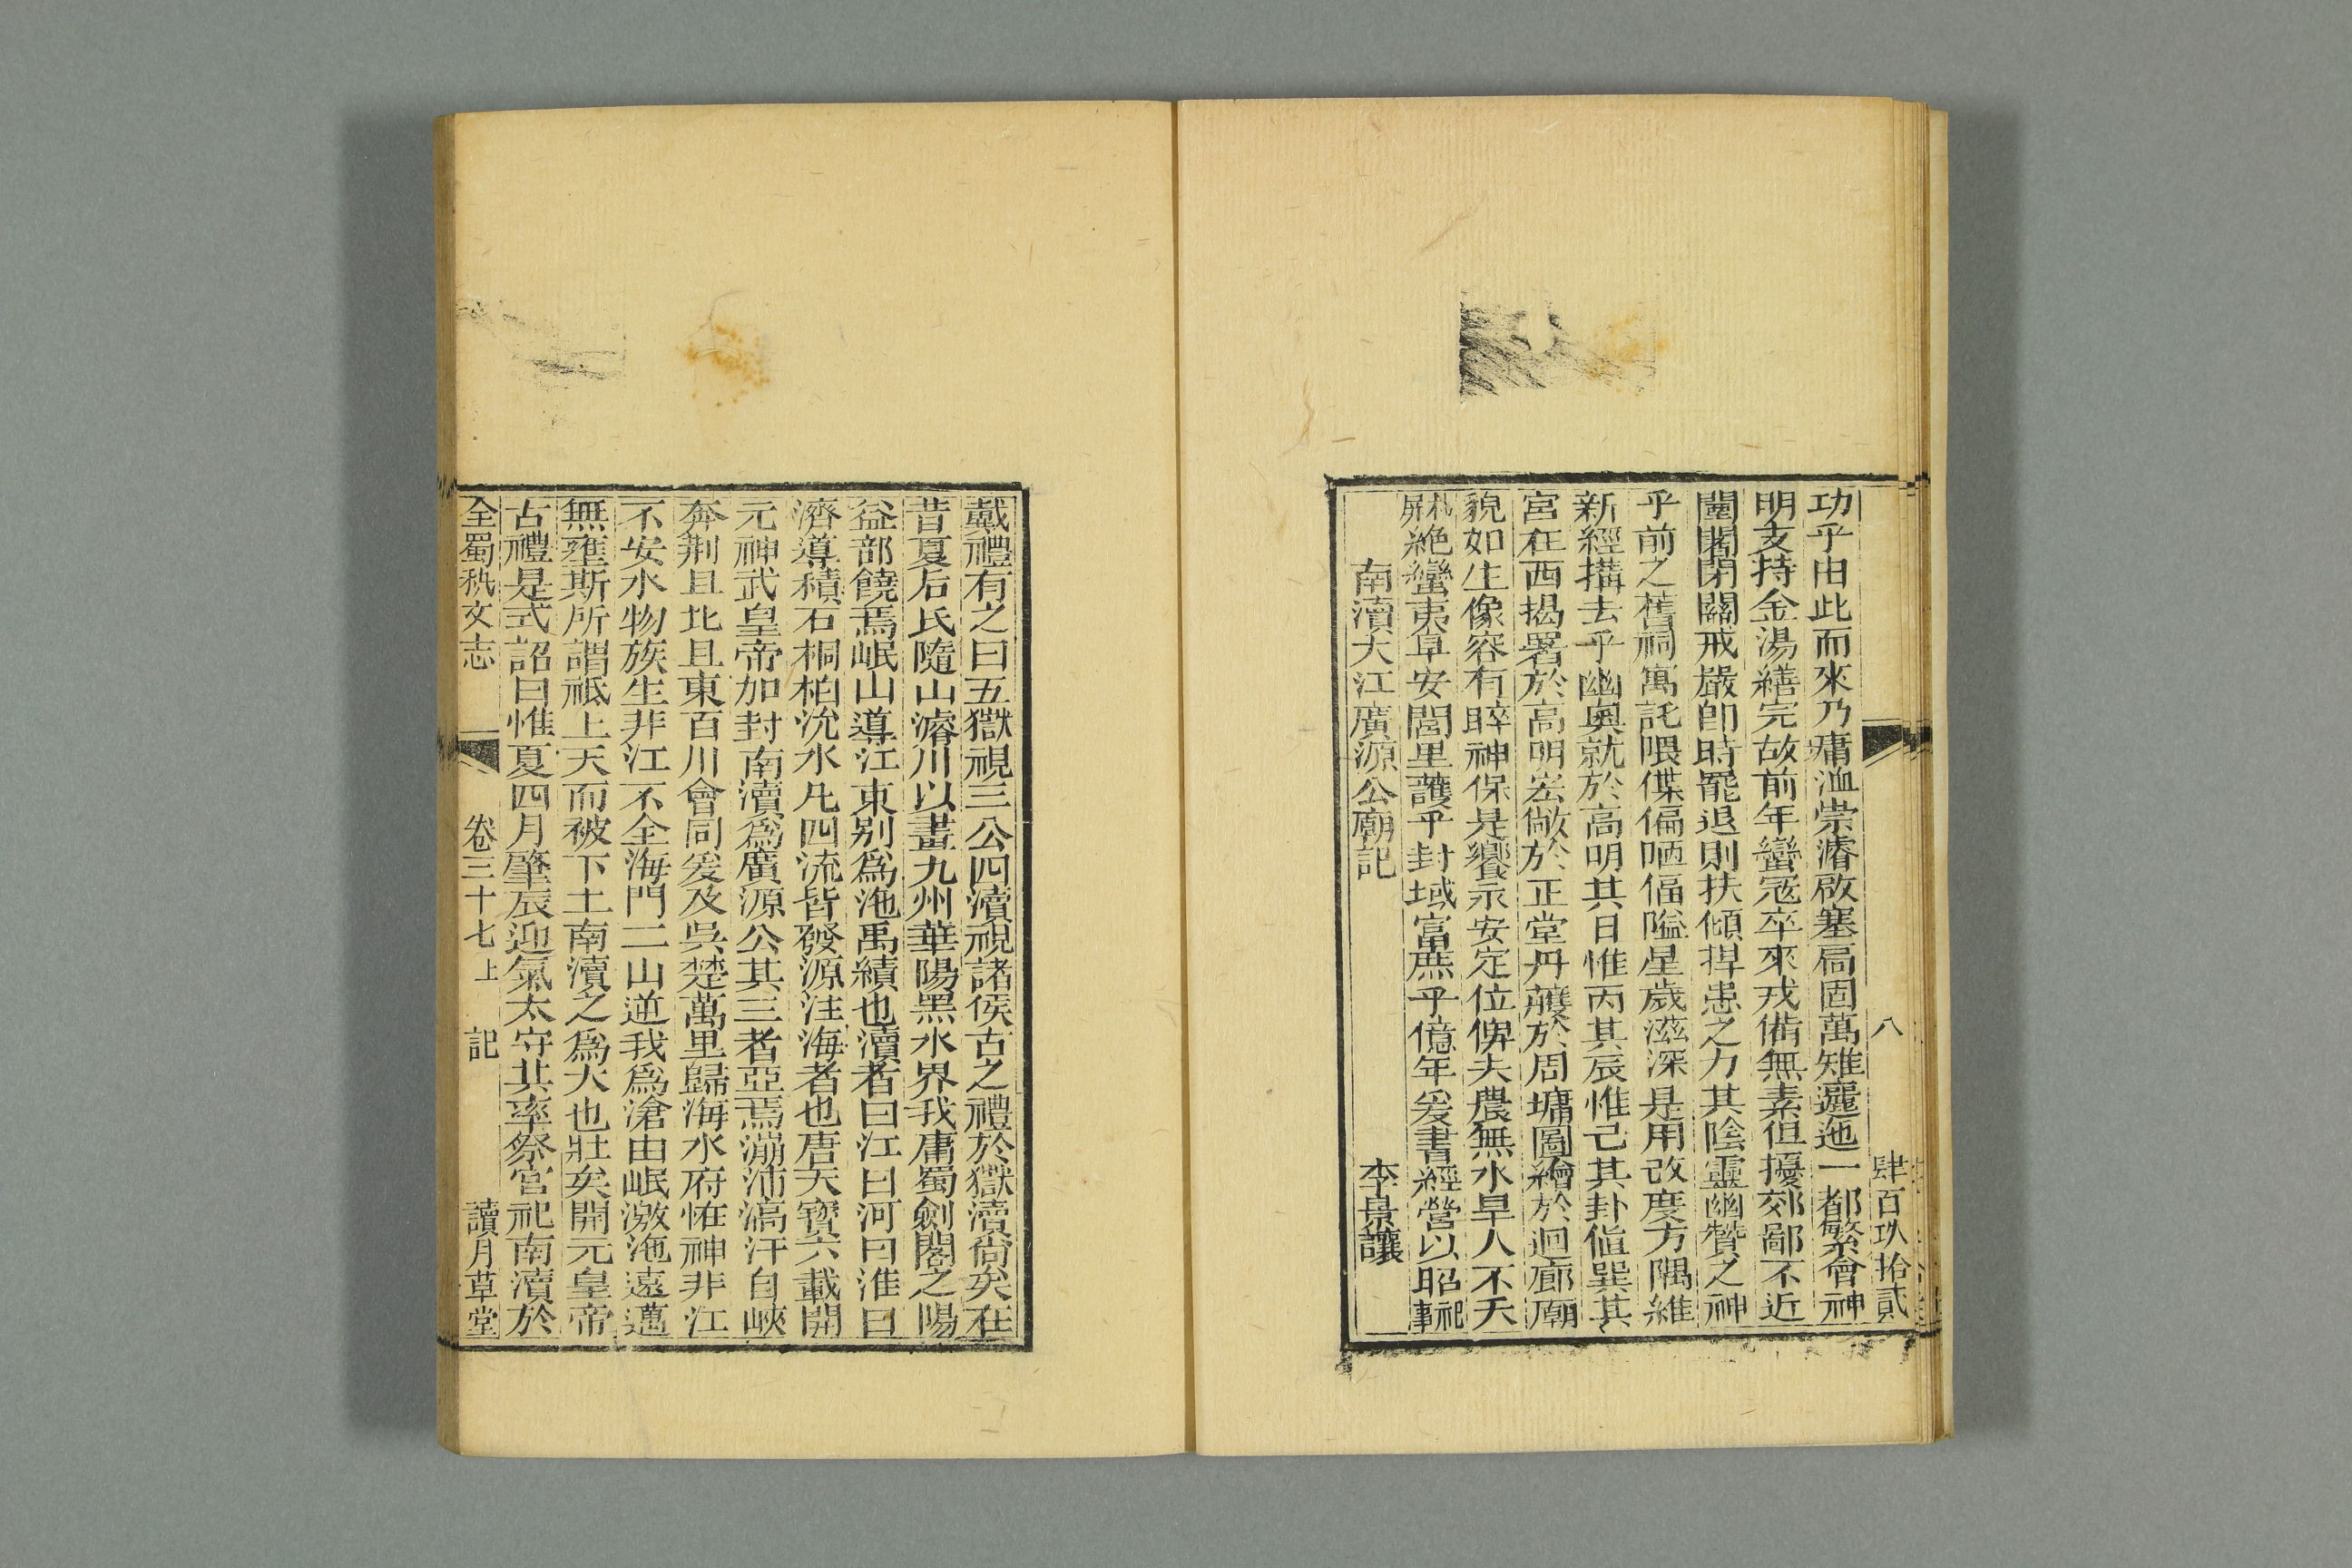 八 肆百玖拾貳
功乎由此而來乃墉洫崇濬啟塞扃固萬雉邐迤一都繁會神
明支持金湯繕完故前年蠻寇卒來戎備無素但擾郊鄙不近
闉闍閉關戒嚴卽時罷退則扶傾捍患之力其陰靈幽贊之神
乎前之舊祠寓託隈偞偏陋偪隘星歲滋深是用改度方隅維
新經搆去乎幽奧就於高明其日惟丙其辰惟己其卦値巽其
宮在西揭署於高明宏敞於正堂丹雘於周墉圖繪於迴廊廟
貌如生像容有睟神保是饗永安定位俾夫農無水旱人不夭
屏絶蠻夷阜安閭里護乎封域富庶乎億年爰書經營以昭祀事
南瀆大江廣源公廟記 李景讓
戴禮有之曰五嶽視三公四瀆視諸侯古之禮於嶽瀆尙矣在
昔夏后氏隨山濬川以畫九州華陽黑水界我庸蜀劍閣之陽
益部饒焉岷山導江東别爲沲禹績也瀆者曰江曰河曰淮曰
濟導積石桐柏沇水凡四流皆發源注海者也唐天寶六載開
元神武皇帝加封南瀆爲廣源公其三者亞焉漰沛滈汗自峽
奔荆且北且東百川會同爰及吳楚萬里歸海水府恠神非江
不安水物族生非江不全海門二山逆我爲滄由岷激沲遠邁
無壅斯所謂祇上天而被下土南瀆之爲大也壯矣開元皇帝
古禮是式詔曰惟夏四月肇辰迎氣太守其率祭官祀南瀆於
全蜀秇文志 卷三十七上 記 讀月草堂